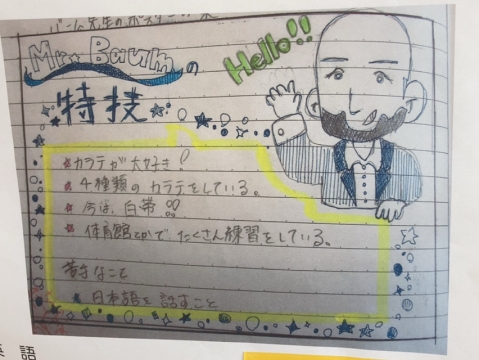 バーム先生の
Mr. Baumの
特技
Hello!!
カラテが大好き!
4種類のカラテをしている。
今は、白帯!!
体育館とかでたくさん練習をしている。
好きなこと
日本語を話すこと
英 語